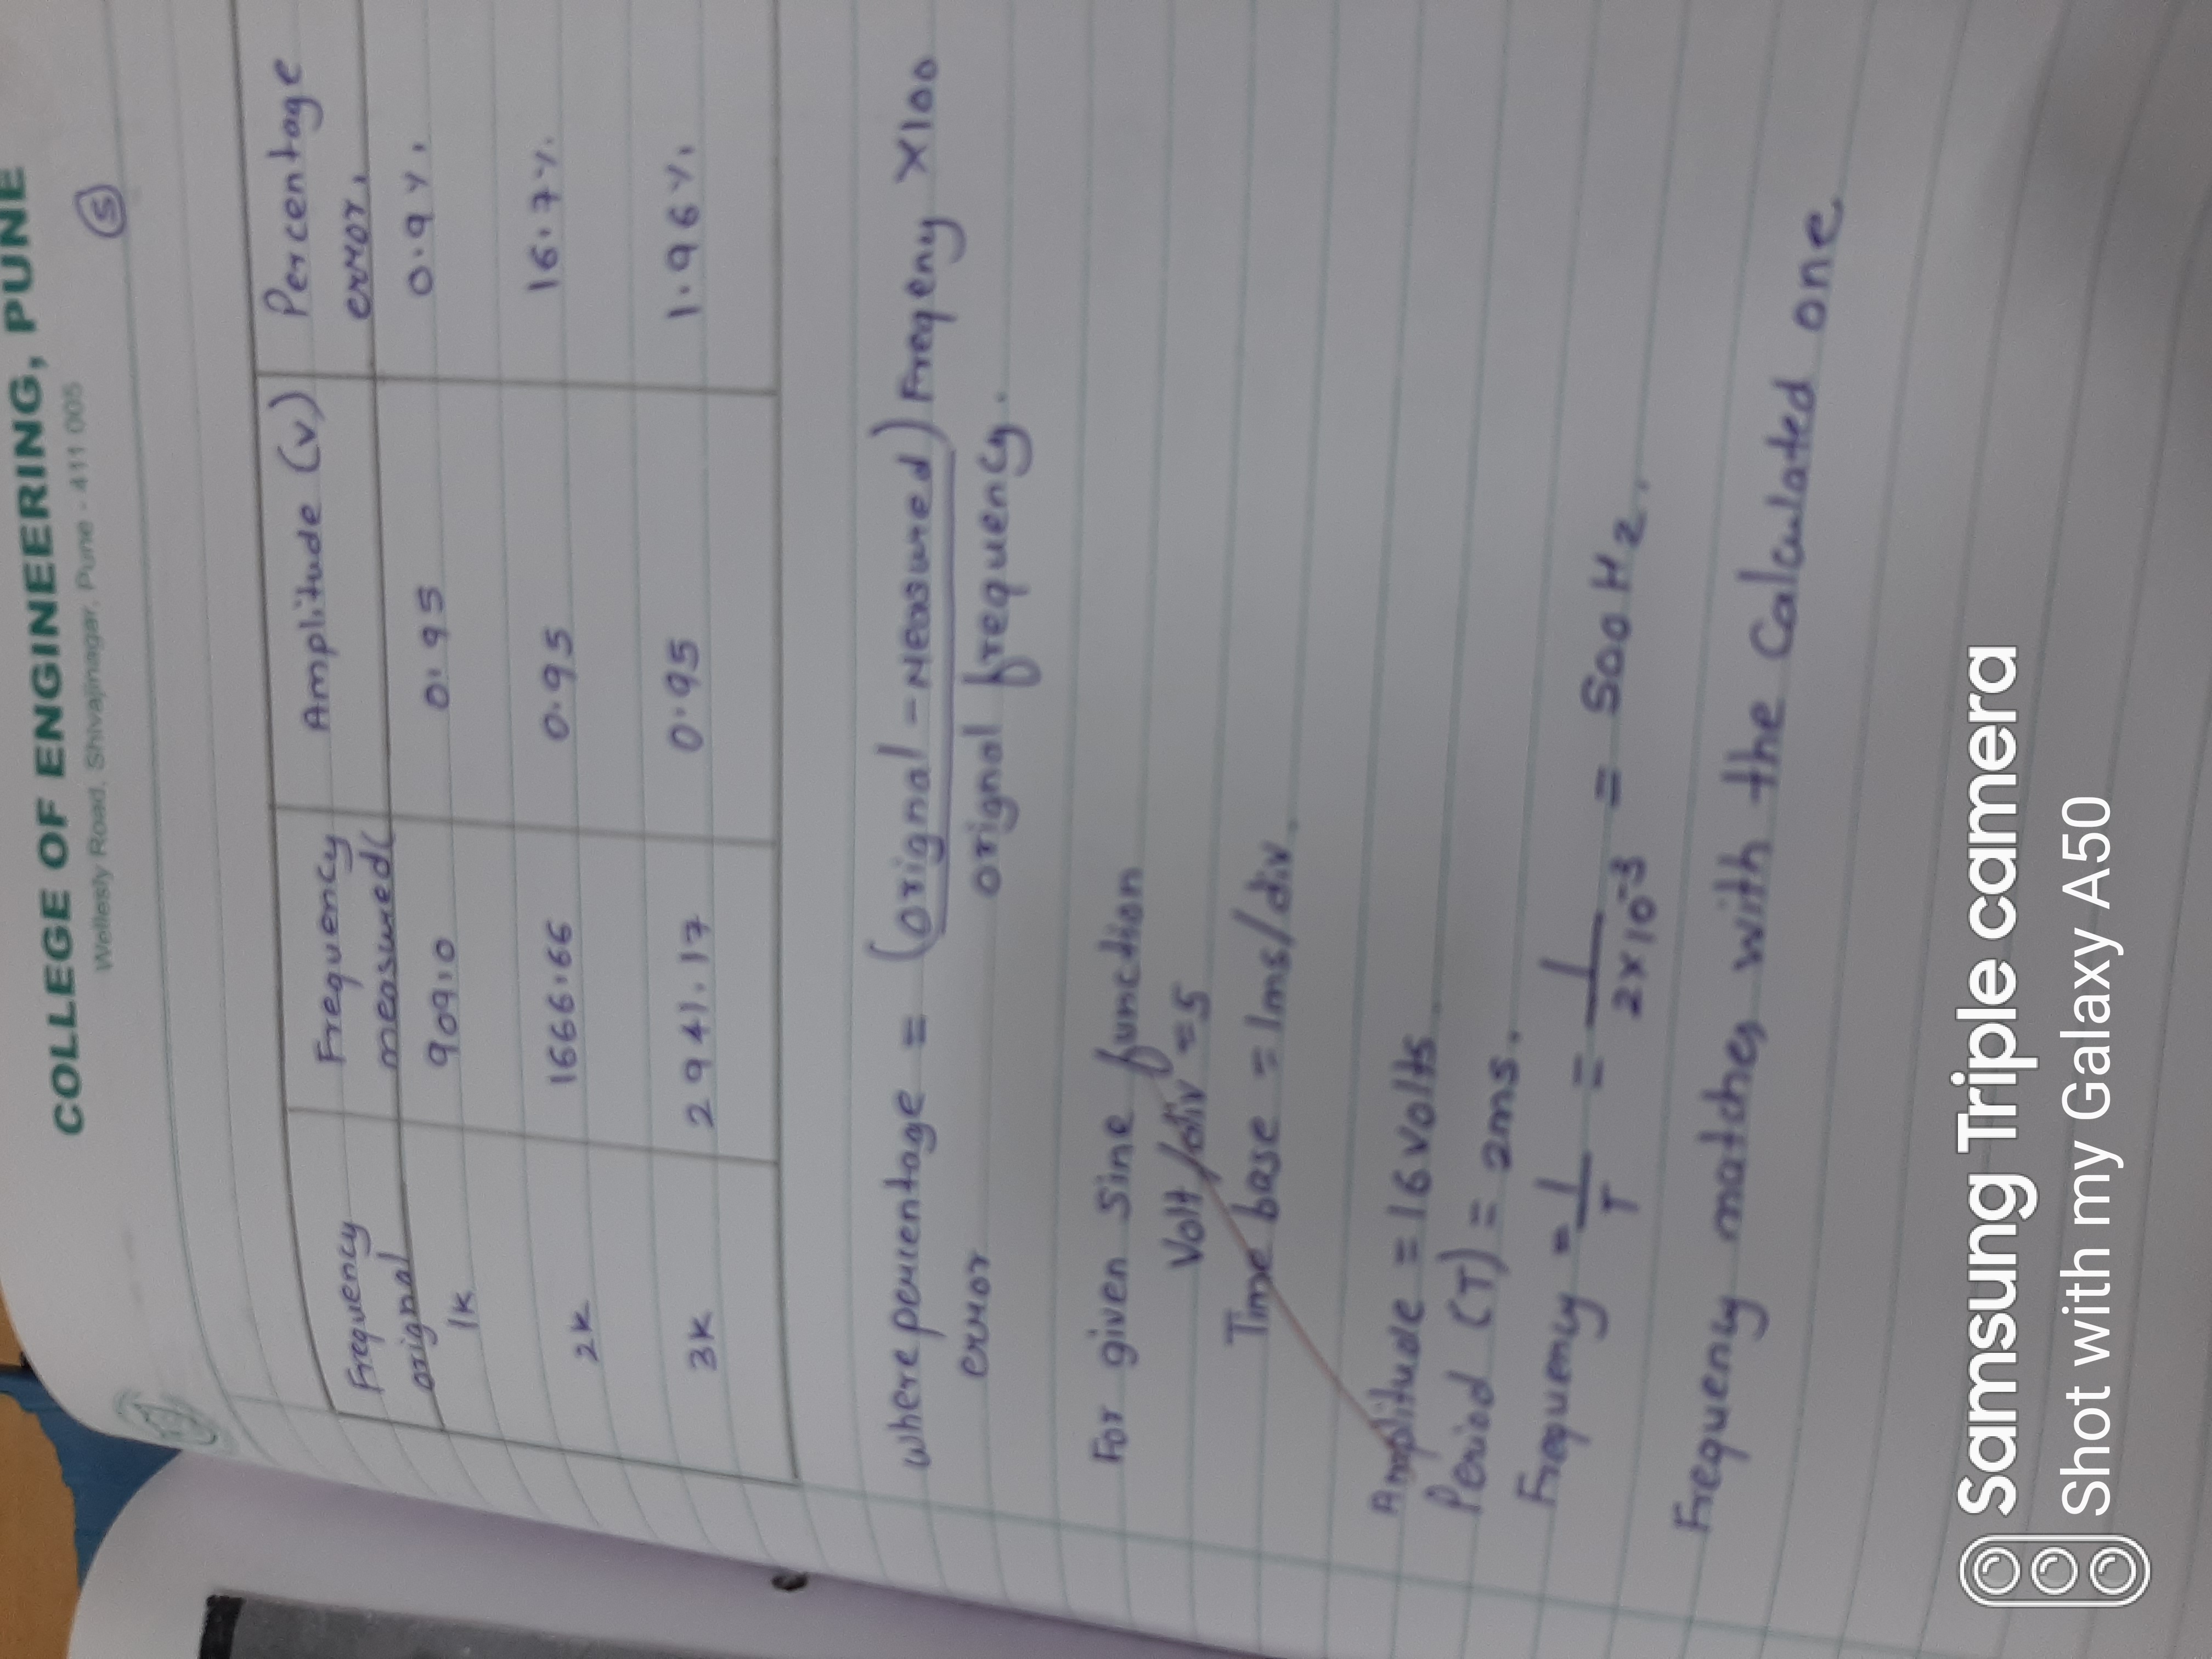 COLLEGE OF ENGINEERING, PUNE
Wellesly Road, Shivajinagar, Pune - 411 005
5
Frequency Frequency Amplitude (v) Percentage
orignal measured( error.
1K 909.0 0.95 0.9%.
2K 1666.66 0.95 16.7%.
3K 2941.17 0.95 1.96%.
where percentage = (orignal - Measured) Freqeny X100
error orignal frequency.
For given Sine function
Volt/div = 5
Time base = 1ms/div.
Amplitude = 16 Volts
Period (T) = 2ms.
Frequency = 1/T = 1/2x10-3 = 500 Hz.
Frequeny matches with the Calculated one
Samsung Triple camera
Shot with my Galaxy A50